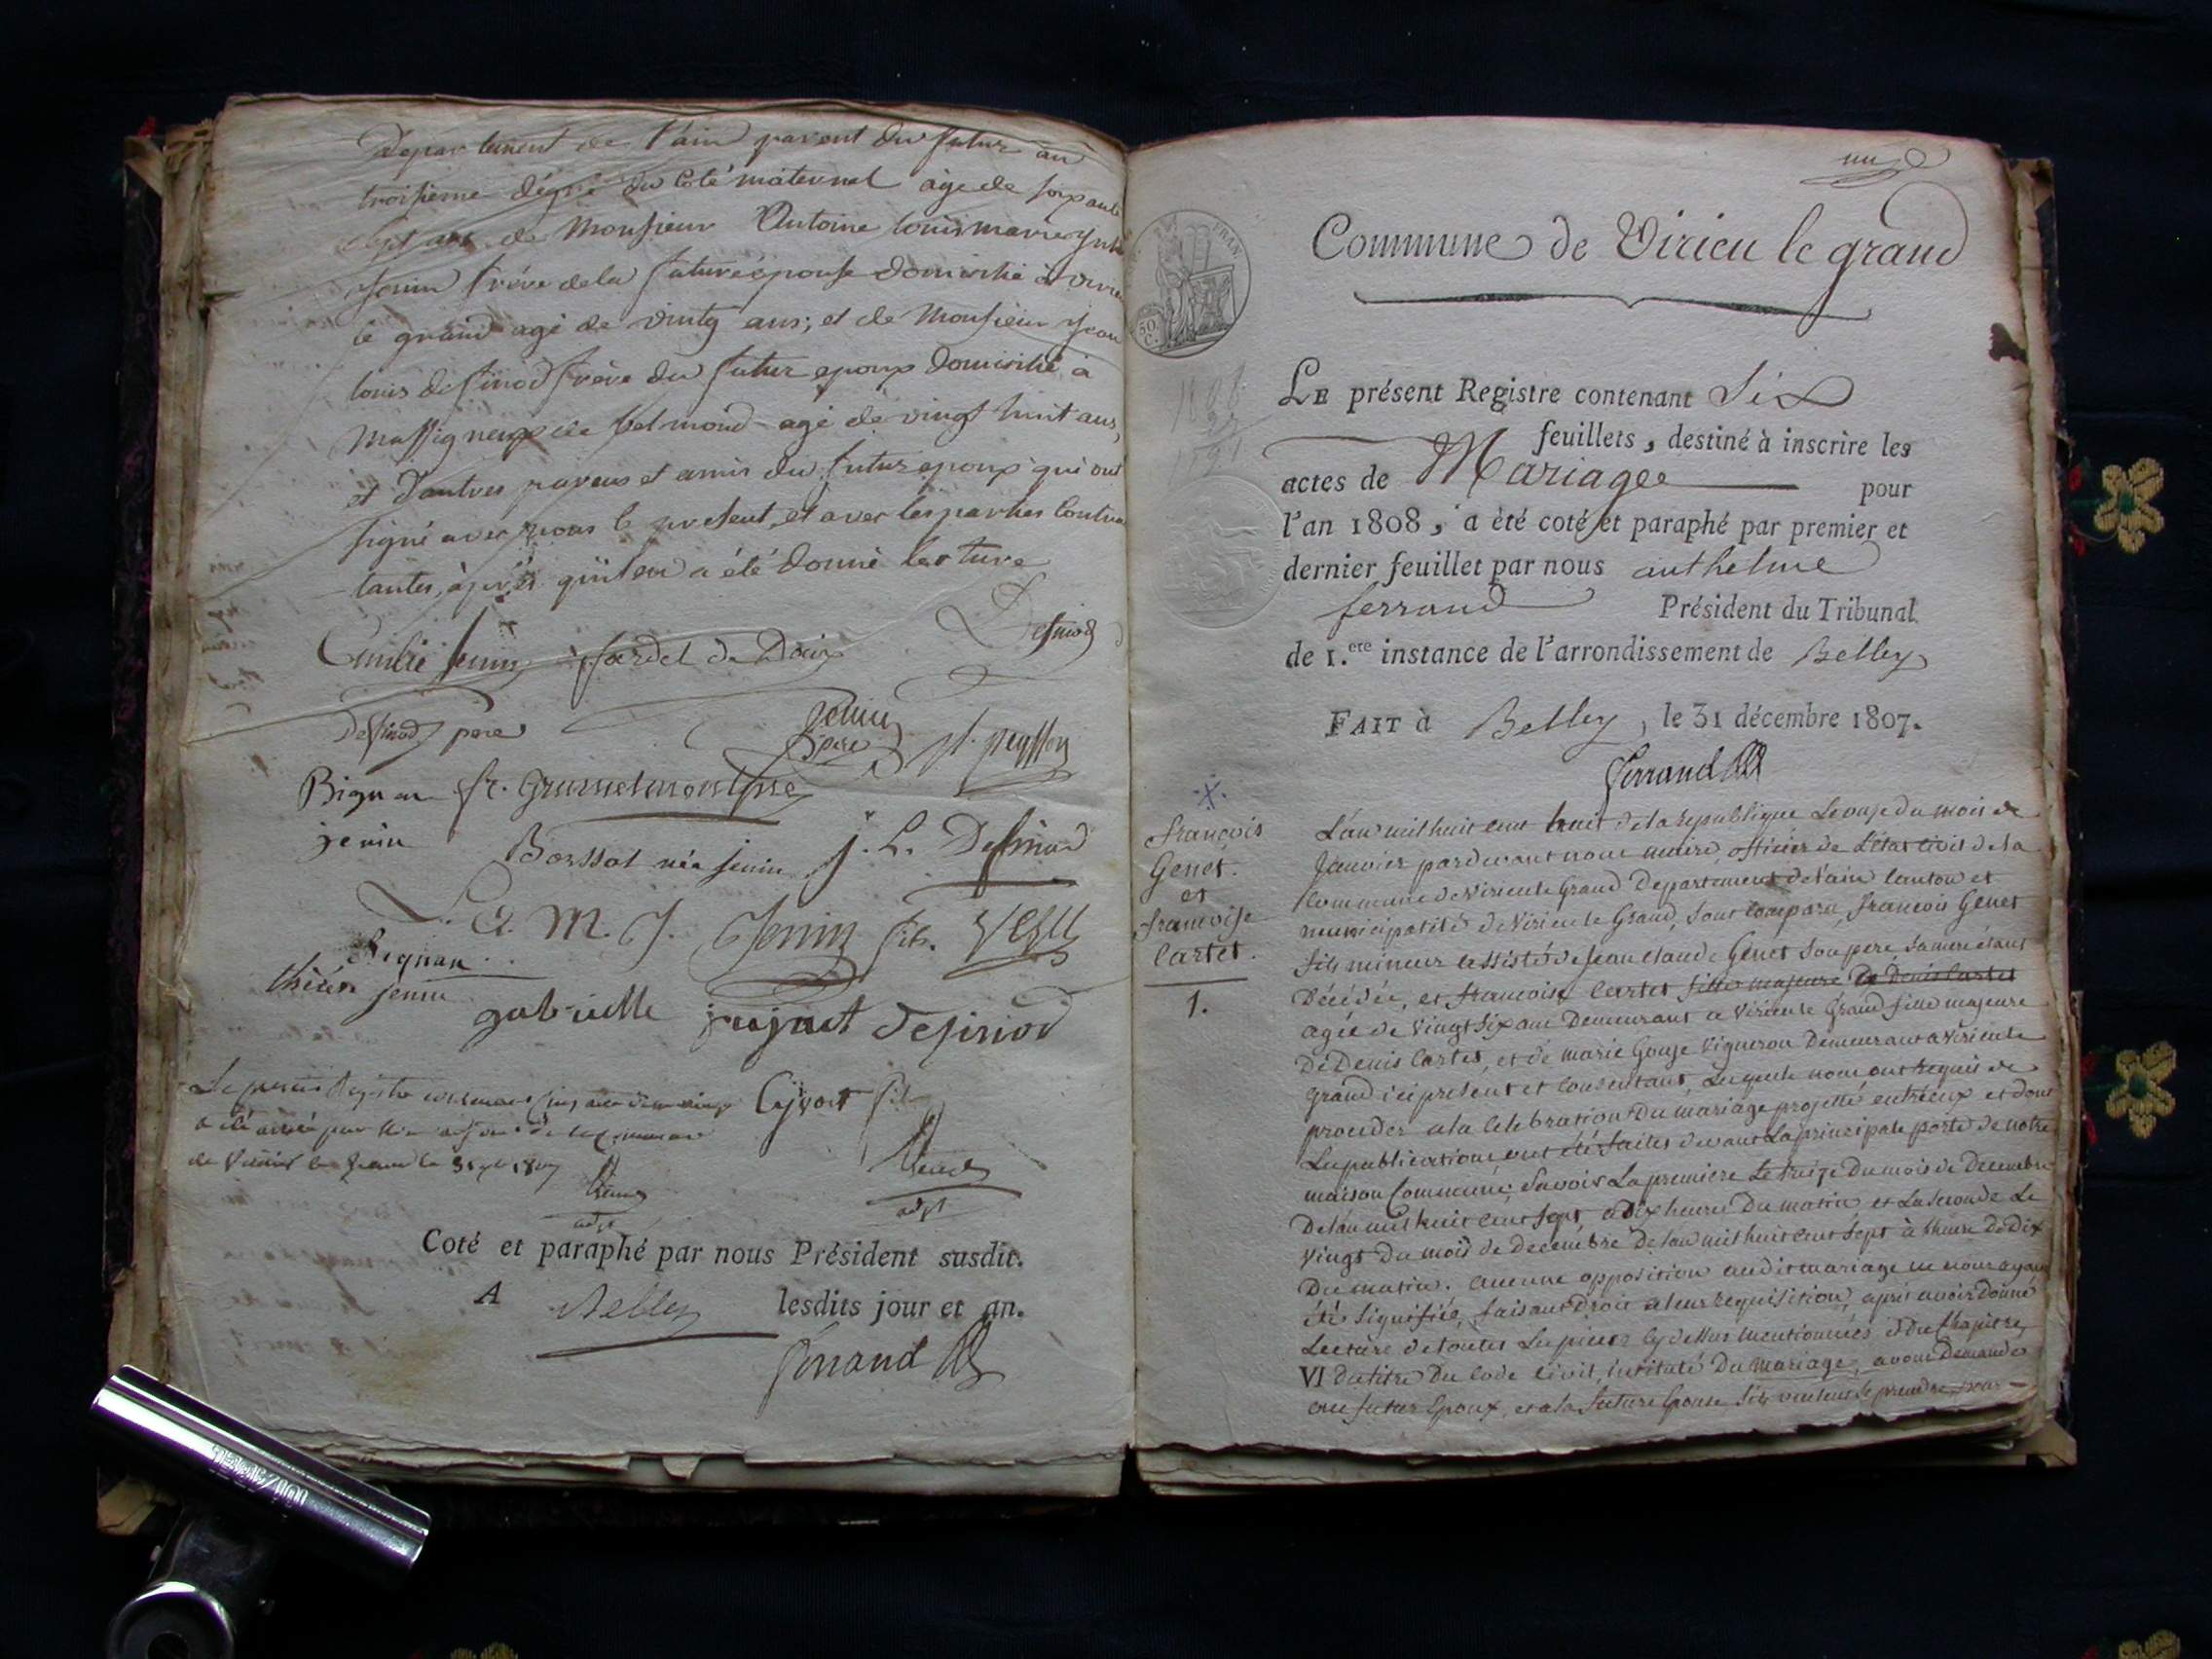 Departement de l'ain parent du futur au
troisieme dégré du Coté maternel agé de soixante
sept ans de Monsieur Antoine louis marie
Jenin frére de la future épouse domicilié à virieu
le grand agé de vintg ans; et de Monsieur Jean
louis Dessinod frère du futur epoux domicilié a
Massigneux de belmond agé de vingt huit ans,
et d'autres parens et amis du futur epoux qui ont
signé avec nous le present, et avec les parties Contrac
tantes, àprès qu'il en a été donné lecture
Emilie Jenin fardel de Dessinod
Dessinod pere Jenin pere
Bignan fr.
jenin Borssat née jenin J. L. Desinod
L. A. M. J. Jenin fils.
Bignan
jenin
gabrielle jenin Desinod
Le présent Registre
a été arrêté par
de Virieu le grand le 31 Xbre 1807
fils
adjt
adjt
Coté et paraphé par nous Président susdit.
A Belley lesdits jour et an.
Ferrand
Commune de Virieu le grand
FRAN
50 C.
LE présent Registre contenant Six
feuillets, destiné à inscrire les
actes de Mariages pour
l'an 1808, a été coté et paraphé par premier et
dernier feuillet par nous anthelme
ferrand Président du Tribunal
de 1.ere instance de l'arrondissement de Belley
FAIT à Belley, le 31 décembre 1807.
Ferrand
françois
Genet.
et
francoise
Cartet.
1.
L'an mil huit cent huit de la republique Le onze du mois de
Janvier pardevant nous maire, officier de l'état civil de la
Commune de Virieu le Grand Departement de l'ain Canton et
municipalité de Virieu le Grand, sont comparu, francois Genet
fils mineur assisté de Jean claude Genet son pere, sa mere étant
Décédée, et francoise Cartet fille majeure de Denis Cartet
agée de vingt six ans Demeurant a Virieu le Grand fille majeure
De Denis Cartet, et de marie Gouje Vigneron Demeurant a Virieu le
Grand ici present et consentant, Lesquels nous ont requis de
proceder a la Celebration du mariage projetté entreeux et dont
Les publications ont été faites devant La principale porte de notre
maison Commune; Savoir La premiere Le treize Du mois de Decembre
De l'an mil huit cent sept a Dix heures Du matin et La seconde Le
vingt Du mois de Decembre De l'an mil huit cent sept à l'heure De Dix
Du matin. aucune opposition audit mariage ne nous ayant
été Signifiée, faisant Droit a leur requisition, après avoir Donné
Lecture de toutes Les pieces cy dessus mentionnées, et du Chapitre
VI du titre Du Code Civil, intitulé Du mariage, avons Demandé
au futur Epoux, et a la future Epouse s'ils veulent se prendre pour